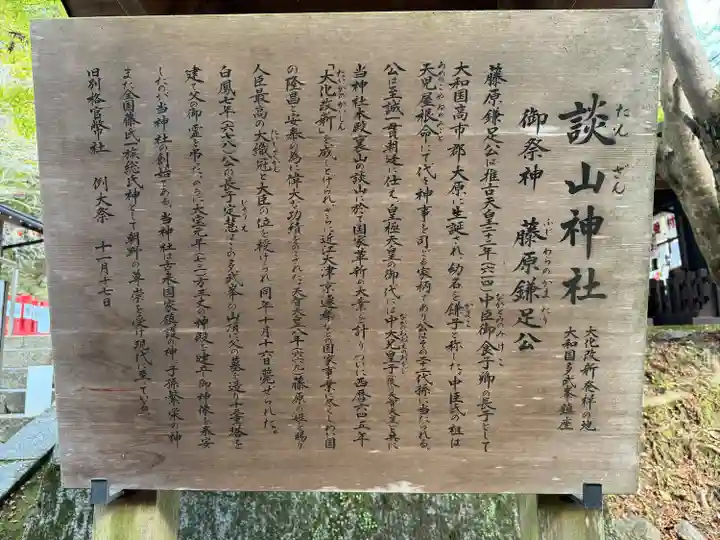 談山神社
たん ざん
大化改新発祥の地
大和国多武峯鎮座
御祭神 藤原鎌足公
ふじわらのかまたり
藤原鎌足公は推古天皇二十二年(六一四)中臣御食子卿の長子として
大和国高市郡大原に生誕され幼名を鎌子と称した。中臣氏の祖は
天児屋根命にして代々神事を司どる家柄であり公はその二十二代孫に当たられる。
公は至誠一貫朝廷に仕え皇極天皇の御代には中大兄皇子(後の天智天皇)と共に
当神社本殿裏山の談山に於て国家革新の大業を計り ついに西暦六四五年
「大化改新」を成しとげられ、さらに近江大津京遷都などの国家事業に尽くし わが国
の隆昌と安泰の為に偉大な功績をのこされた 天智天皇八年(六六九)藤原の姓を賜り
人臣最高の大織冠と大臣の位を授けられ同年十月十六日薨ぜられた。
白鳳七年(六七八)公の長子定慧はこの多武峯の山頂に父の墓を造り十三重塔を
建て父の御霊を弔た。のちに大宝元年(七〇一)方三丈の神殿を建立、御神像を奉安
したのが当神社の創始である。当神社は古来国家鎮護の神 子孫繁栄の神
また全国藤氏一族総氏神として朝野の尊崇を受け現代に至っている。
旧別格官幣社 例大祭 十一月十七日